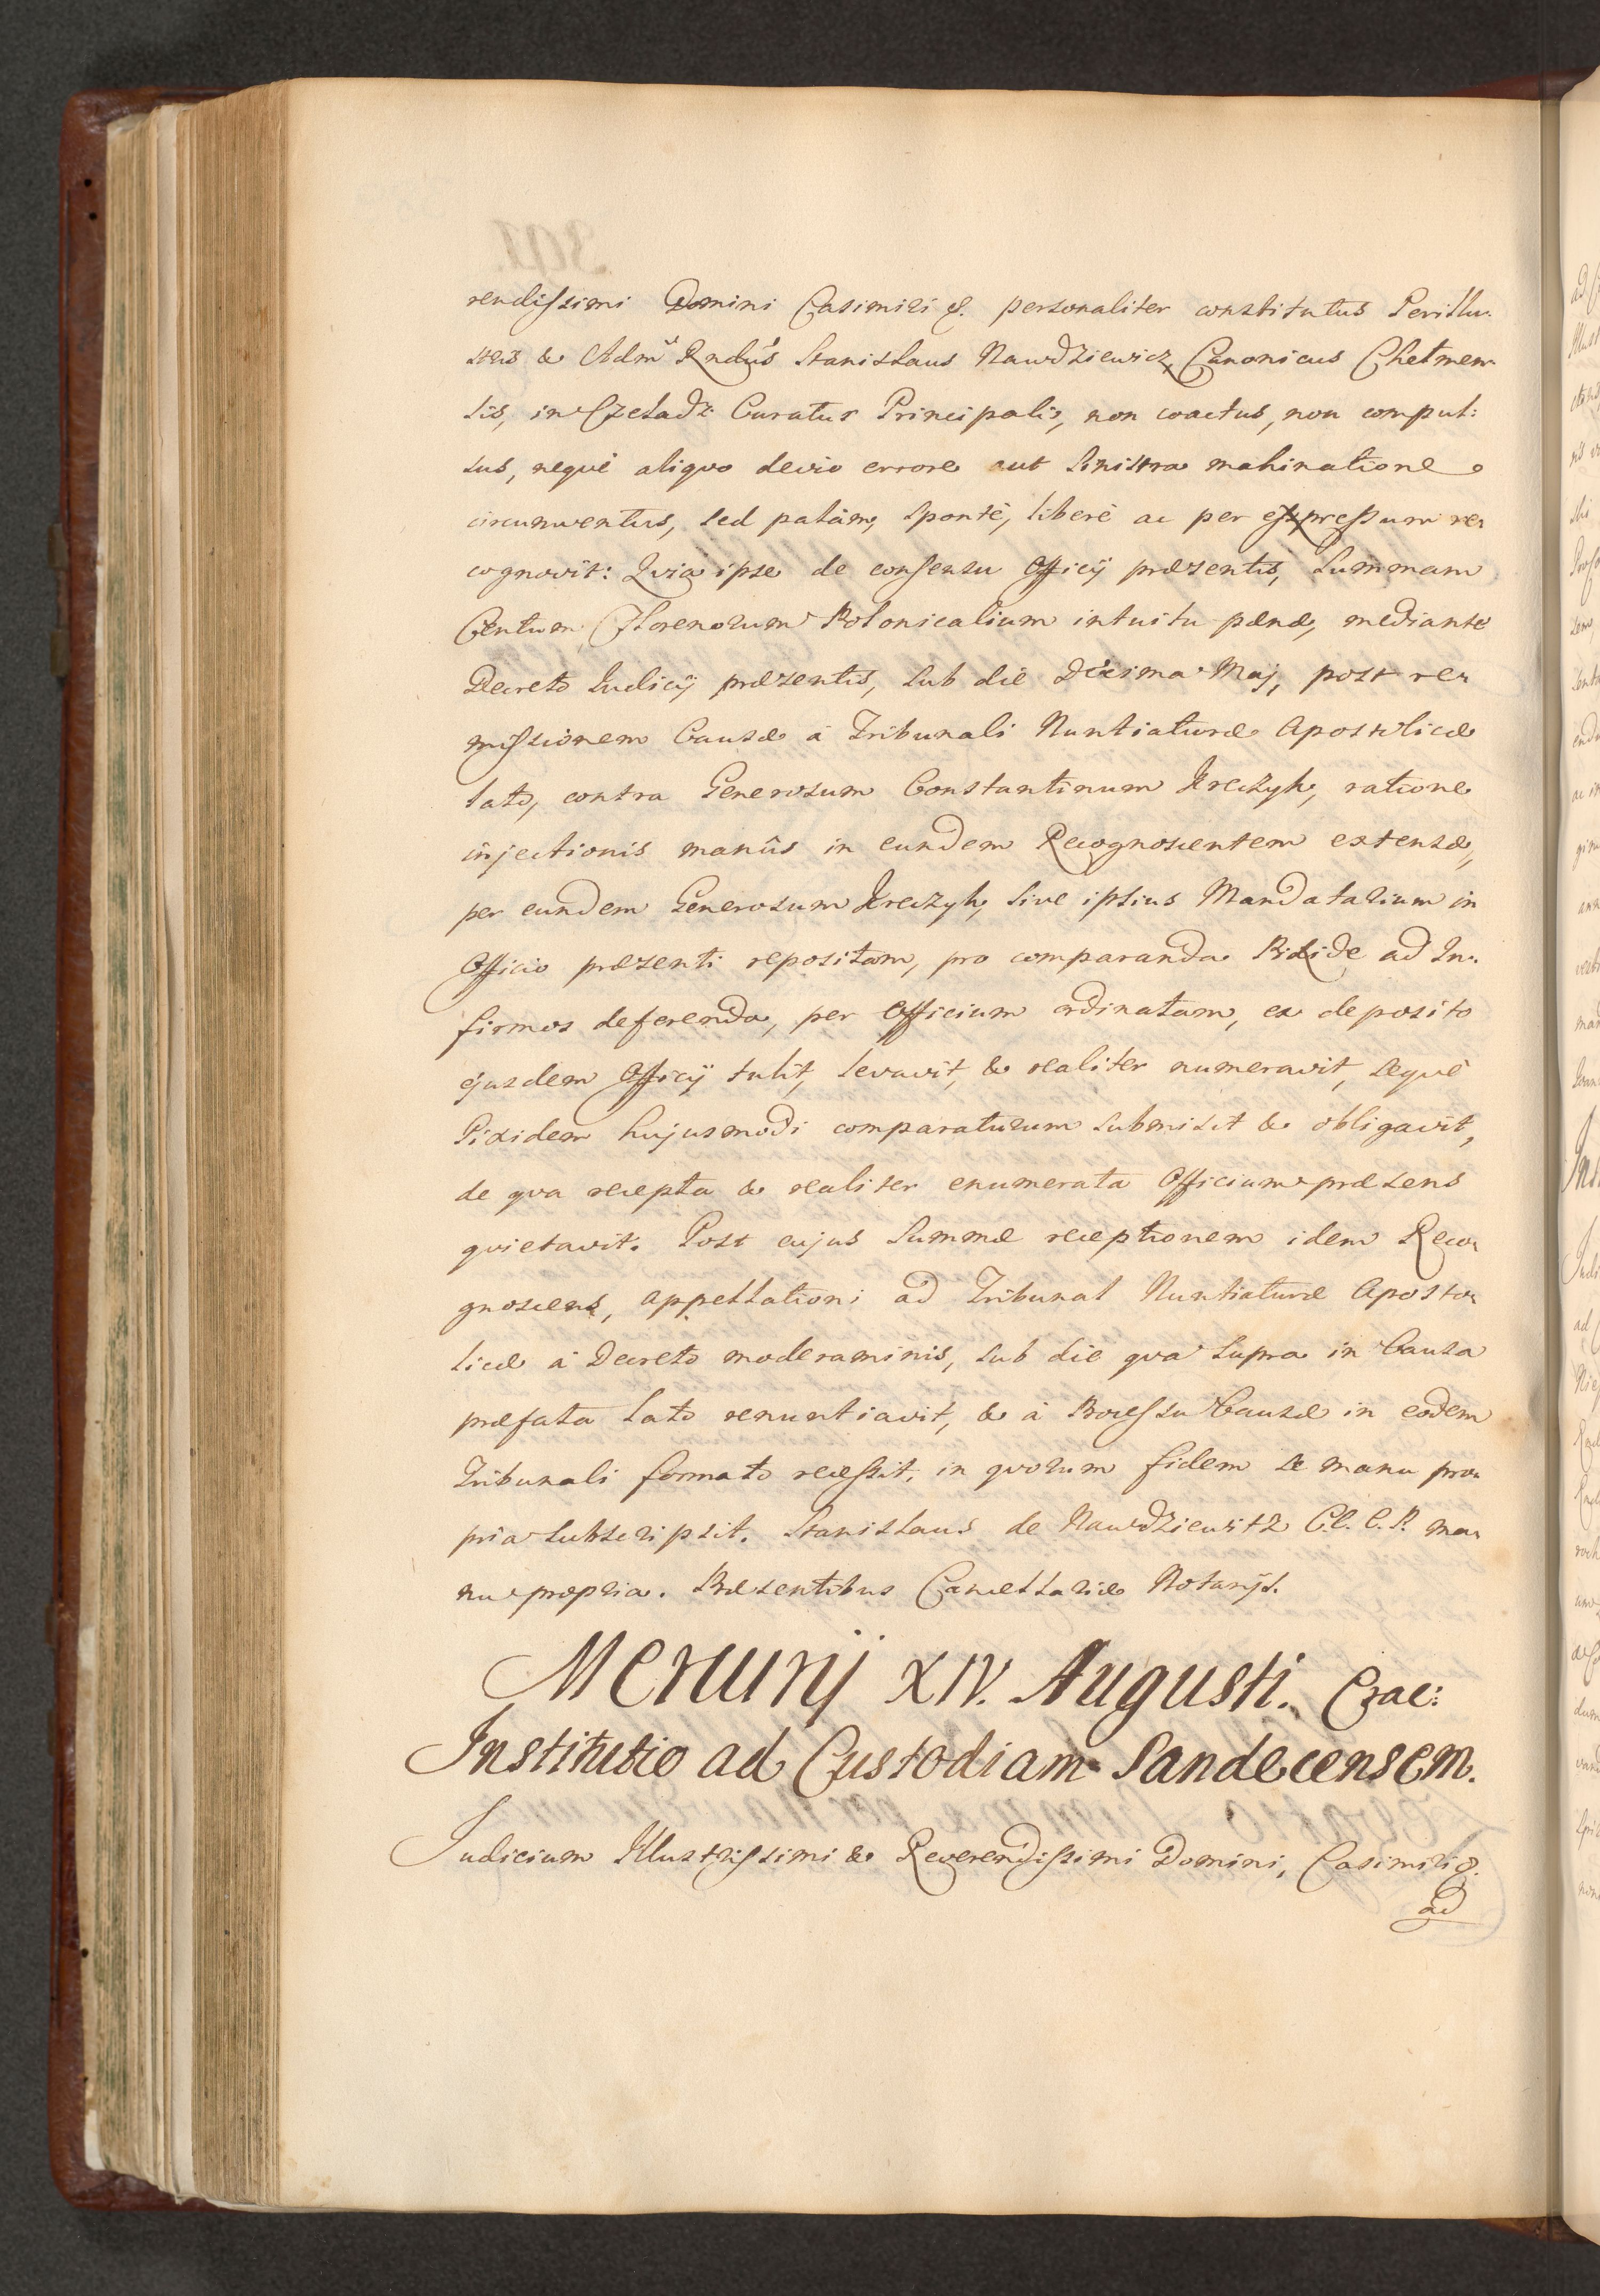 rendissimi Domini Casimiri &. personaliter constitutus Perillu-
stris & Admᵈ Rndus Stanislaus Nawdziewicz, Canonicus Chelmen-
sis, in Czeladz Curatus Principalis, non coactus, non compul:
sus, neque aliquo devio errore aut sinistra mahinatione
circumventus, sed palàm, spontè, liberè ac per expressum re-
cognovit: Quia ipse de consensu Officij præsentis, Summam
Centum Florenorum Polonicalium intuitu pænæ, mediante
Decreto Iudicij præsentis, sub die Decima Maj, post re-
missionem Causæ à Tribunali Nuntiaturæ Apostolicæ
lato, contra Generosum Constantinum Kreczyk, ratione
injectionis manûs in eundem Recognoscentem extensæ,
per eundem Generosum Kreczyk, sive ipsius Mandatarium in
Officio præsenti repositam, pro comparanda Pixide ad In-
firmos deferenda, per Officium ordinatam, ex deposito
ejusdem Officij tulit, levavit, & realiter numeravit, seque
Pixidem hujusmodi comparaturum submisit & obligavit,
de qva recepta & realiter enumerata Officium præsens
qvietavit. Post cujus Summæ receptionem idem Reco-
gnoscens, appellationi ad Tribunal Nuntiaturæ Aposto-
licæ à Decreto moderaminis, sub die qva supra in Causa
præfata lato renuntiavit, & à Processu Causæ in eodem
Tribunali formato recessit, in qvorum fidem se manu pro-
pria subscripsit. Stanislaus de Nawdziewitz C.C. C.P. ma-
nu propria. Præsentibus Cancellariæ Notarijs.
Mercurij XIV. Augusti. Crac:
Institutio ad Custodiam Sandecensem.
Iudicium Illustrissimi & Reverendissimi Domini, Casimiri &.
ad